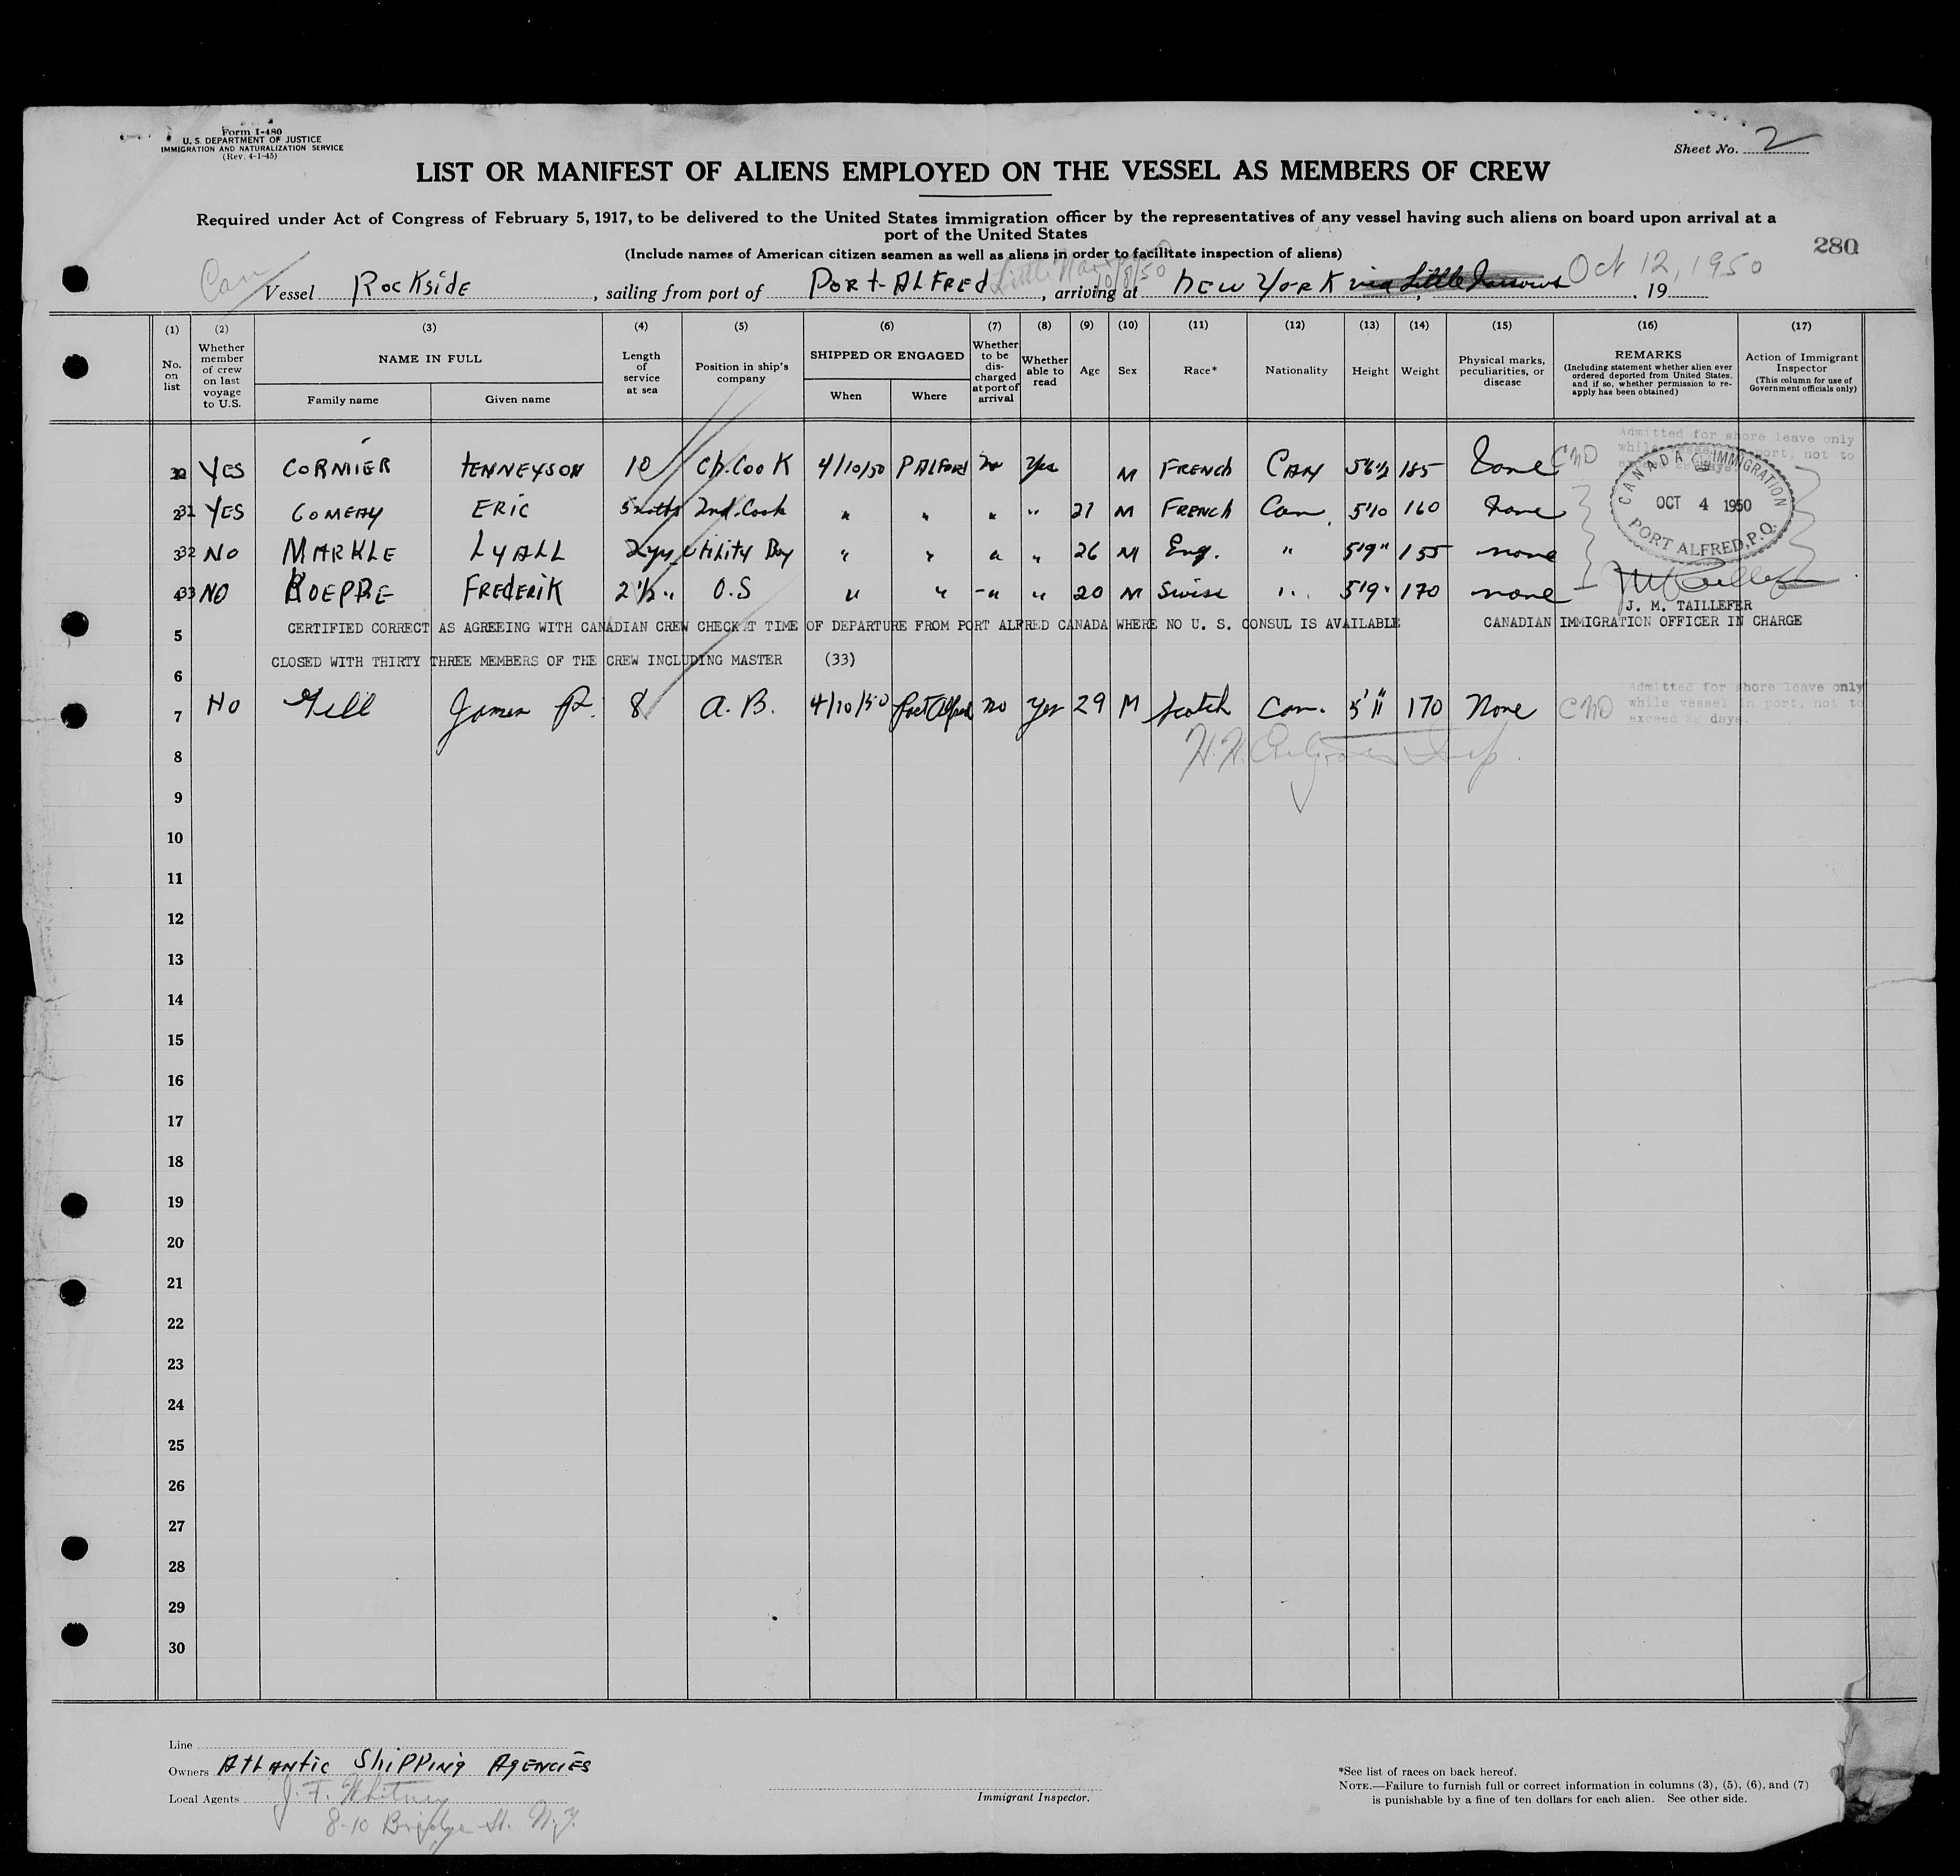 Form I-480
U. S. DEPARTMENT OF JUSTICE
IMMIGRATION AND NATURALIZATION SERVICE
(Rev. 4-1-45)
Sheet No. 2
LIST OR MANIFEST OF ALIENS EMPLOYED ON THE VESSEL AS MEMBERS OF CREW
Required under Act of Congress of February 5, 1917, to be delivered to the United States immigration officer by the representatives of any vessel having such aliens on board upon arrival at a
port of the United States
280
(Include names of American citizen seamen as well as aliens in order to facilitate inspection of aliens)
Can Vessel Rockside, sailing from port of Port-Alfred, arriving at New York via Little Narrows Oct 12, 1950, 19
(1) (2) (3) (4) (5) (6) (7) (8) (9) (10) (11) (12) (13) (14) (15) (16) (17)
No. on list
Whether member of crew on last voyage to U.S.
NAME IN FULL
Family name
Given name
Length of service at sea
Position in ship's company
SHIPPED OR ENGAGED
When
Where
Whether to be discharged at port of arrival
Whether able to read
Age
Sex
Race*
Nationality
Height
Weight
Physical marks, peculiarities, or disease
REMARKS
(Including statement whether alien ever ordered deported from United States, and if so, whether permission to reapply has been obtained)
Action of Immigrant Inspector
(This column for use of Government officials only)
YES CORMIER TENNEYSON 10 Ch. Cook 4/10/50 P ALFORD no yes M FRENCH CAN 5'6½ 185 none
31 YES COMEAY ERIC 5 mths 2nd. Cook " " " " 21 M FRENCH Can. 5'10 160 none
32 NO MARKLE LYALL 2 yrs Utility Boy " " " " 26 M Eng. " 5'9" 155 none
33 NO ROEPPE FREDERIK 2 1/2 " O.S " " " " 20 M Swiss " 5'9" 170 none
Admitted for shore leave only
CANADA IMMIGRATION
OCT 4 1950
PORT ALFRED, P.Q.
J. M. TAILLEFER
5 CERTIFIED CORRECT AS AGREEING WITH CANADIAN CREW CHECK AT TIME OF DEPARTURE FROM PORT ALFRED CANADA WHERE NO U. S. CONSUL IS AVAILABLE CANADIAN IMMIGRATION OFFICER IN CHARGE
6 CLOSED WITH THIRTY THREE MEMBERS OF THE CREW INCLUDING MASTER (33)
7 No Gill James R. 8 A. B. 4/10/50 Port Alfred no yes 29 M Scotch Can. 5'11" 170 None
Admitted for shore leave only
while vessel in port, not to
exceed 29 days.
8
9
10
11
12
13
14
15
16
17
18
19
20
21
22
23
24
25
26
27
28
29
30
Line
Owners Atlantic Shipping Agencies
Local Agents J. F. Whitney
8-10 Bridge St. N.Y.
Immigrant Inspector.
*See list of races on back hereof.
NOTE.—Failure to furnish full or correct information in columns (3), (5), (6), and (7)
is punishable by a fine of ten dollars for each alien. See other side.